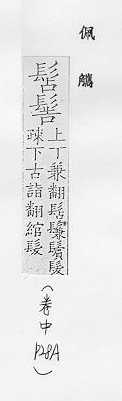 佩觿
髻
上丁兼翻鬑鬢髮
疎下古詣翻綰髮
(卷中 P28A)